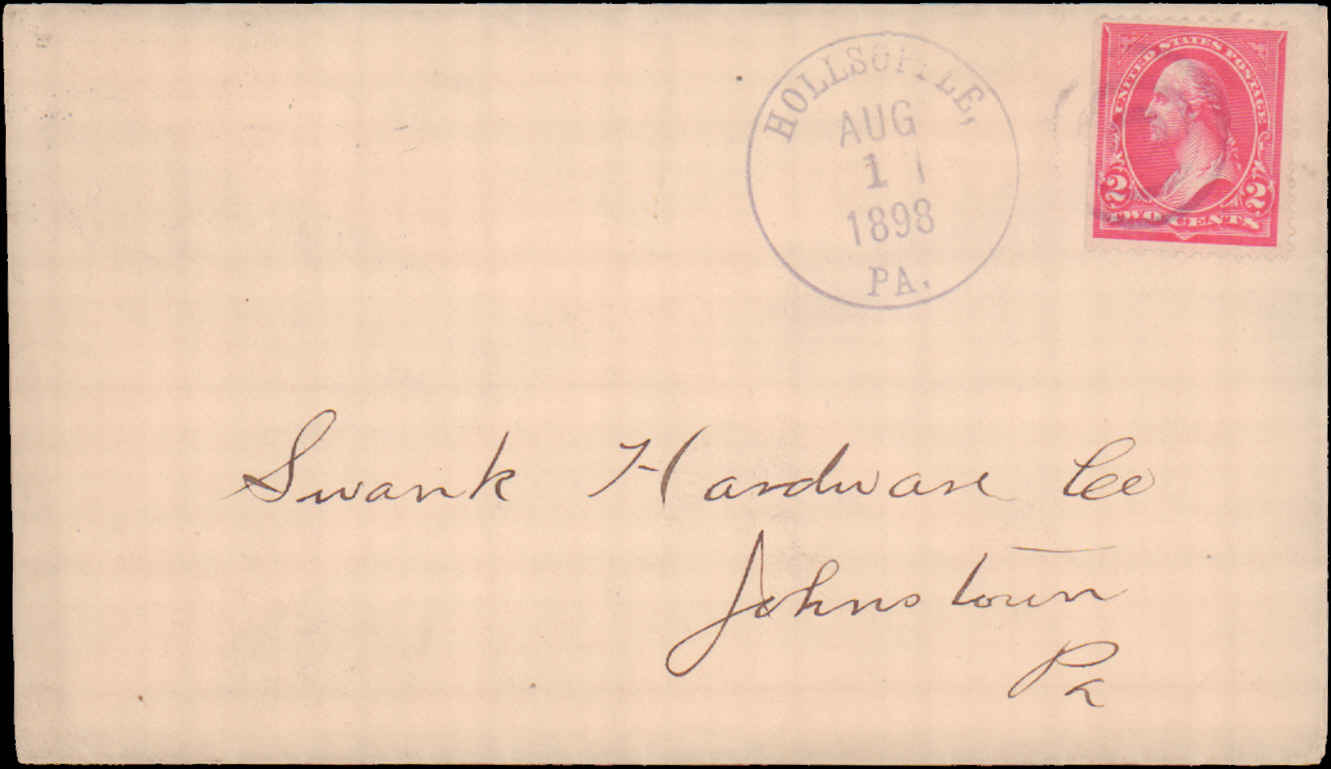 HOLLSOPPLE,
AUG
11
1898
PA.
UNITED STATES POSTAGE
2 2
TWO CENTS
Swank Hardware Co
Johnstown
Pa